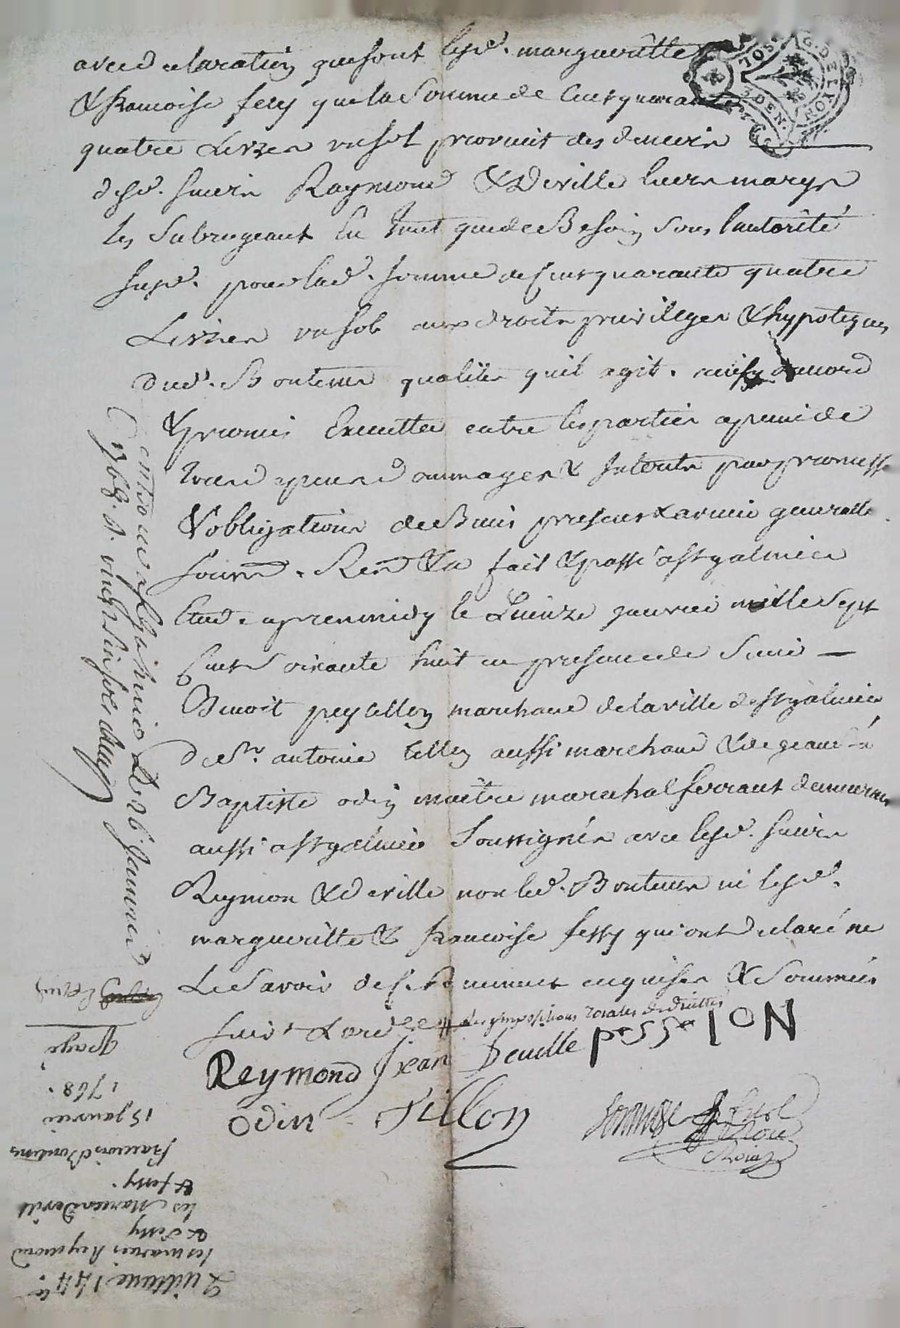 avec declaration que font lesd. margueritte
& francoise fessy que la Somme de Cent quarante
quatre Livres un sol provient des deniers
desd. sieurs Raymond & Deville leurs marys
les Subrogeant En tant que de Besoin Sous l'autorité
susd. pour lad. somme de Cent quarante quatre
Livres un sol aux droits privileges & hypoteques
dud. Bonteme qualités quil agit. ainsy accord
& promis Executter entre les parties a peine de
tous depens dommages & Interets par promesse
& obligations de Biens presents & avenir generalle
soumo. Renon. & Ca fait & passé a St galmier
Etude apres midy le Quinze janvier mille Sept
Cent Soixante huit en presence de Sieur
Benoit peysellon marchand de la ville de St galmier
de Sr. antoine tillon aussi marchand & de jean
Baptiste odin maitre marechal ferrant demeurant
aussi a St galmier Soussignés avec lesd. sieurs
Reymon & deville non led. Bonteme ni lesd.
margueritte & francoise fessy qui ont declaré ne
Le Savoir de ce enquises & Sommés
suivt. L'ord.
Reymond Jean Deville pesselON
Odin Tillon
controllé a St galmier Le 26 janvier
1768
Quittance 144#
les maries Reymond
& fessy
les Maries Deville
& fessy.
francois Bonteme
15 janvier
1768.
payé
G. DE LYON